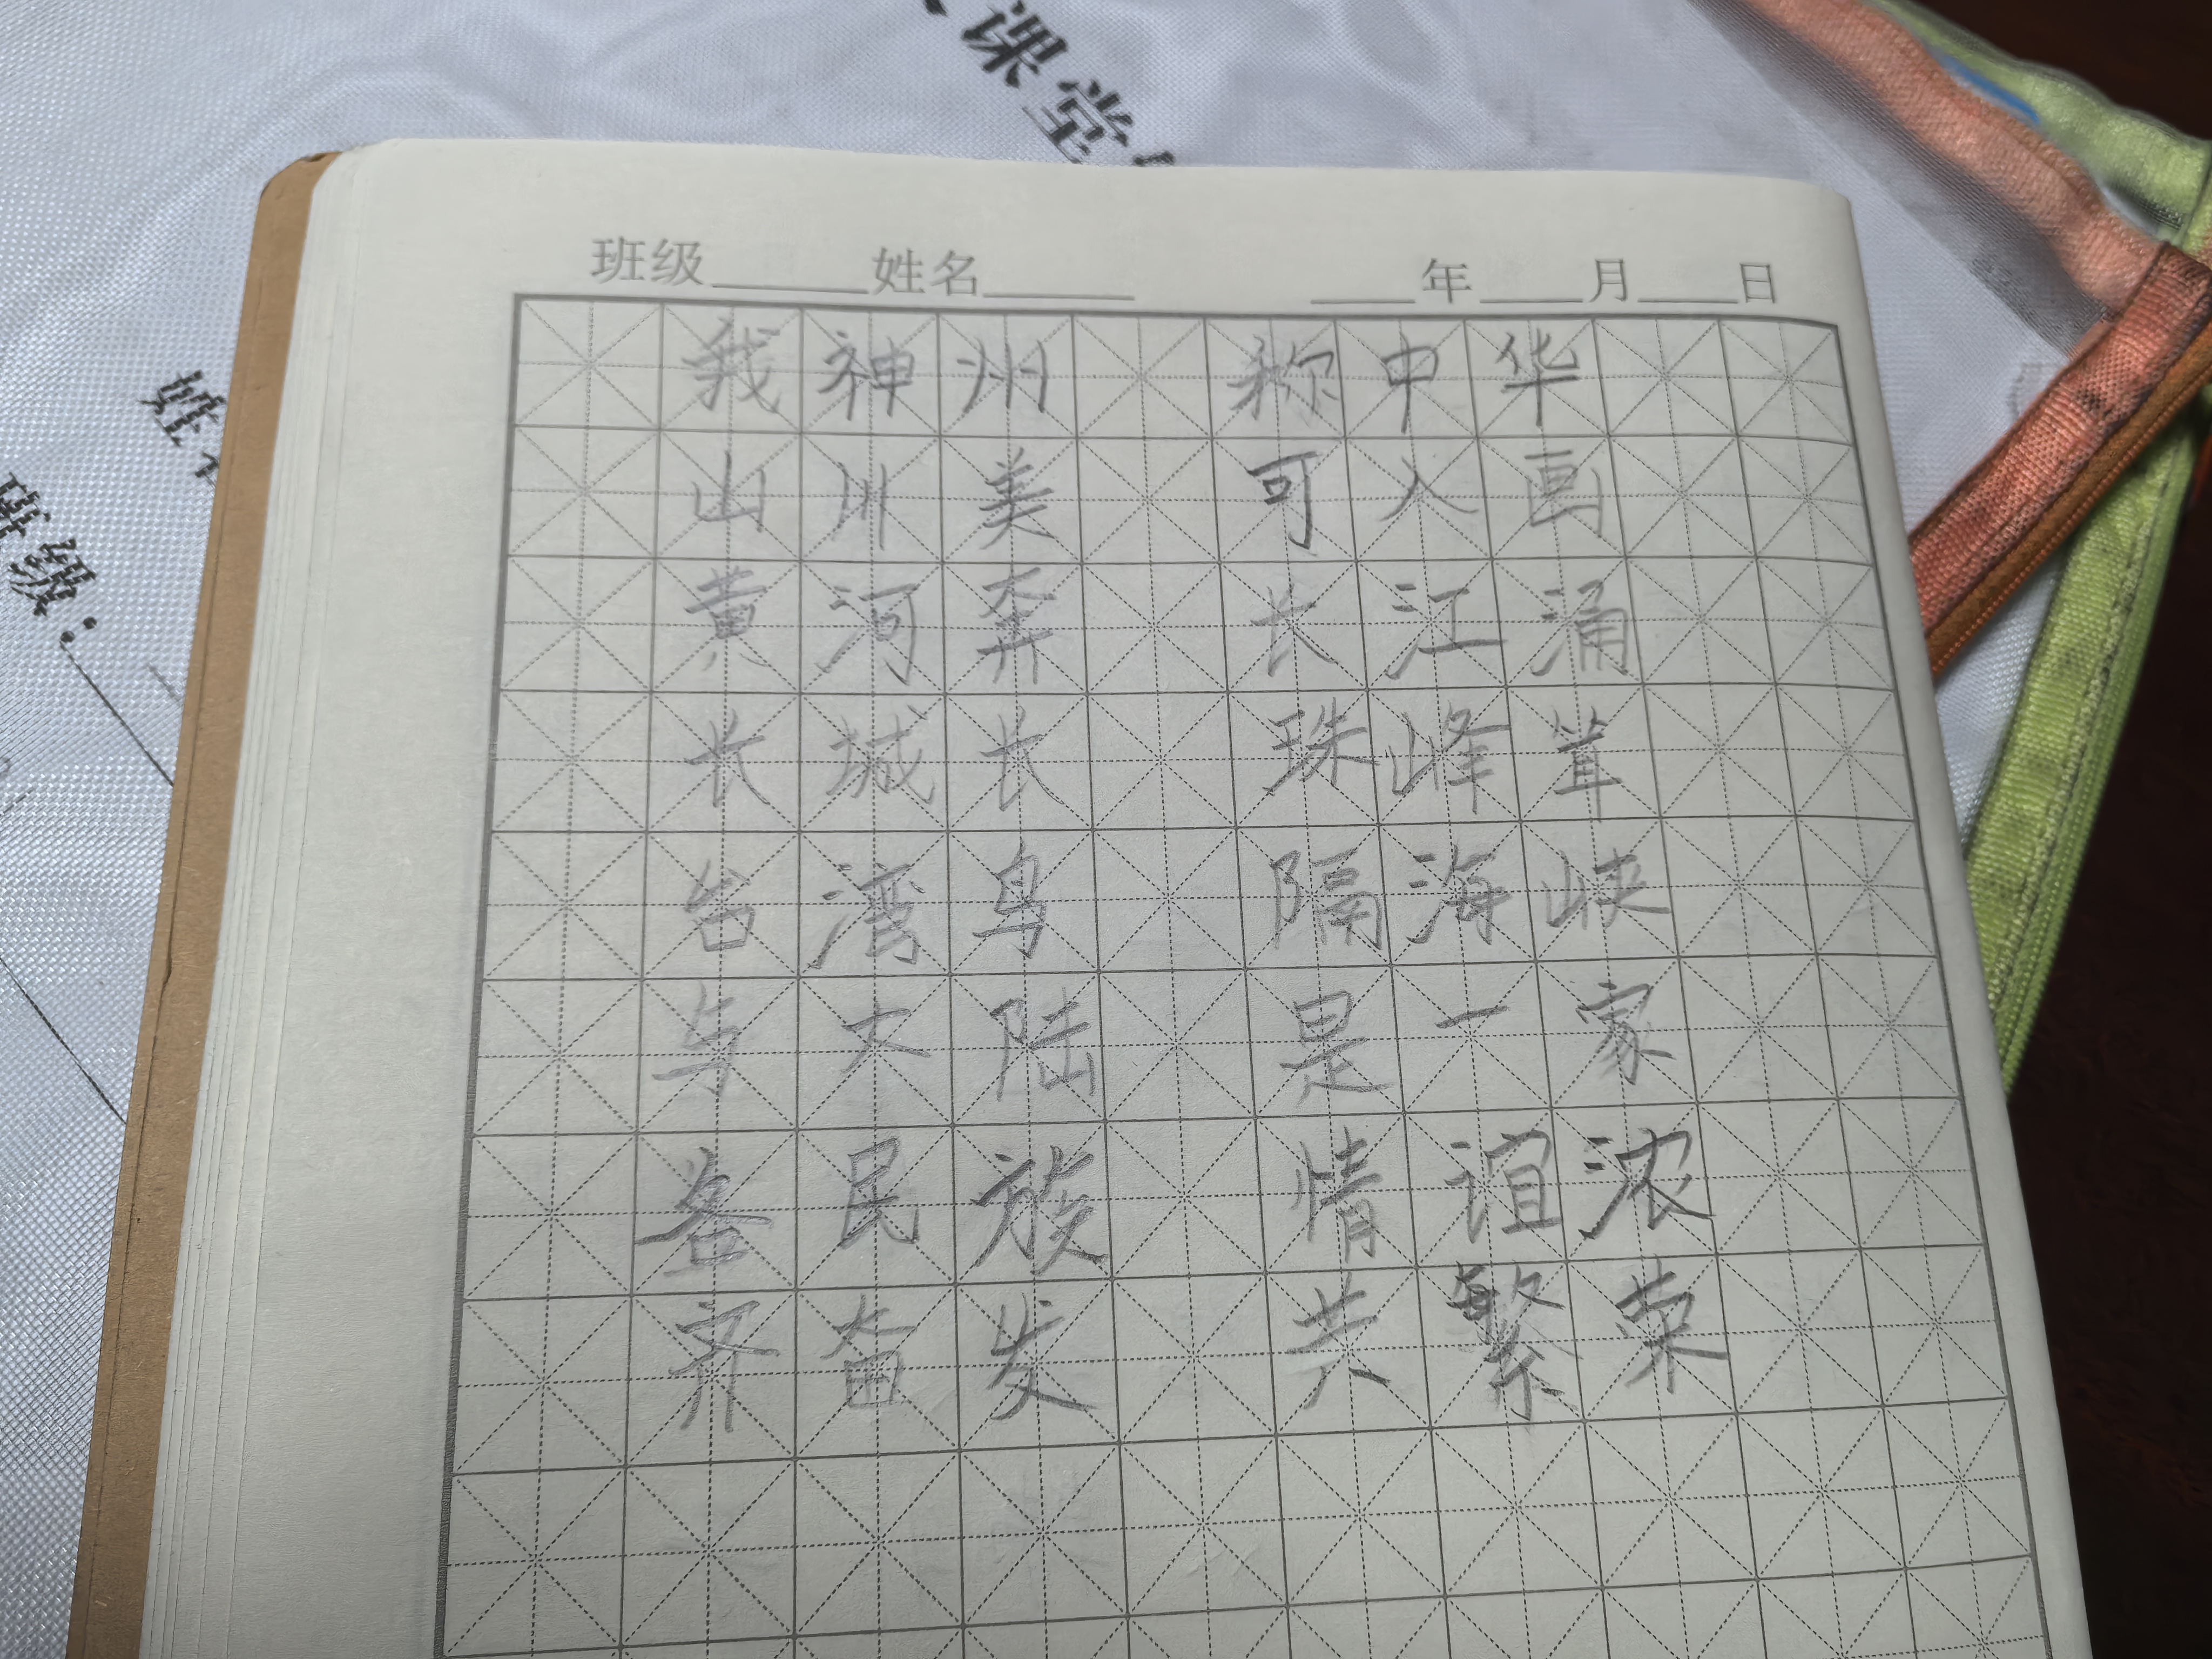 课堂
姓
班级：
班级 姓名 年 月 日
我神州 称中华
山川美 可入画
黄河奔 长江涌
长城长 珠峰耸
台湾岛 隔海峡
与大陆 是一家
各民族 情谊浓
齐奋发 共繁荣